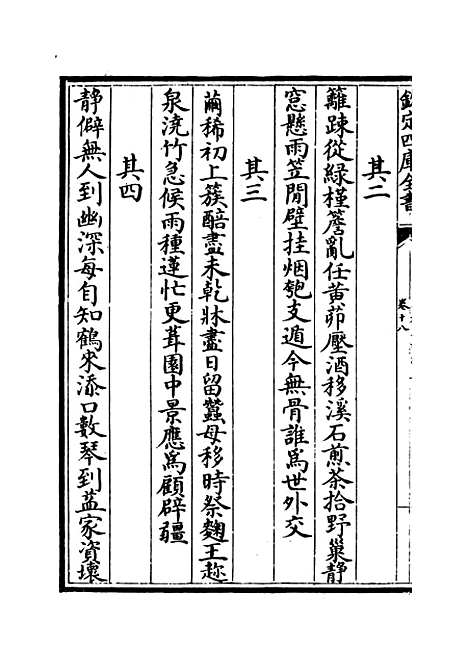 欽定四庫全書
卷十八
其二
籬疎從綠槿簷亂任黃茆壓酒移溪石煎茶拾野巢静
窓懸雨笠閒壁挂烟匏支遁今無骨誰為世外交
其三
繭稀初上簇醅盡未乾牀盡日留蠶母移時祭麴王趂
泉澆竹急候雨種蓮忙更葺園中景應為顧辟疆
其四
静僻無人到幽深每自知鶴來添口數琴到益家資壊